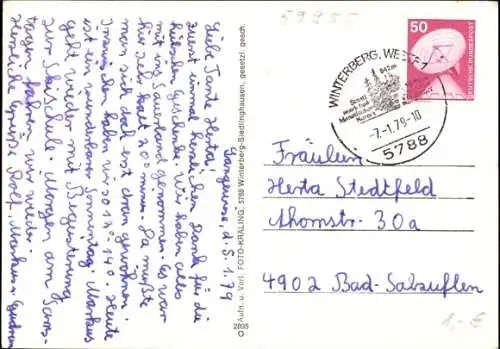 59955
Langewiese, d. 5.1.79
Liebe Tante Herta!
Zuerst einmal herzlichen Dank für die
Geschenke. Wir haben alles
mit ins Sauerland genommen. Es war
hier sehr kalt. Da mußte
man sich doch erst dran gewöhnen.
Inzwischen haben wir nur 10°-14°. Heute
ist ein wunderbarer Sonnentag. Markus
geht wieder mit Begeisterung
zur Skischule. Morgen am Sams-
tag fahren wir wieder.
Herzliche Grüße Rolf, Markus u. Gudrun
2898
Aufn. u. Verl. FOTO-KRALING, 5788 Winterberg-Siedlinghausen, gesetzl. gesch.
WINTERBERG, WESTF 1
842m
Kurort
-7.-1.79-10
5788
50
DEUTSCHE BUNDESPOST
Fräulein
Herta Stedtfeld
Ahornstr. 30a
4902 Bad-Salzuflen
1,- €